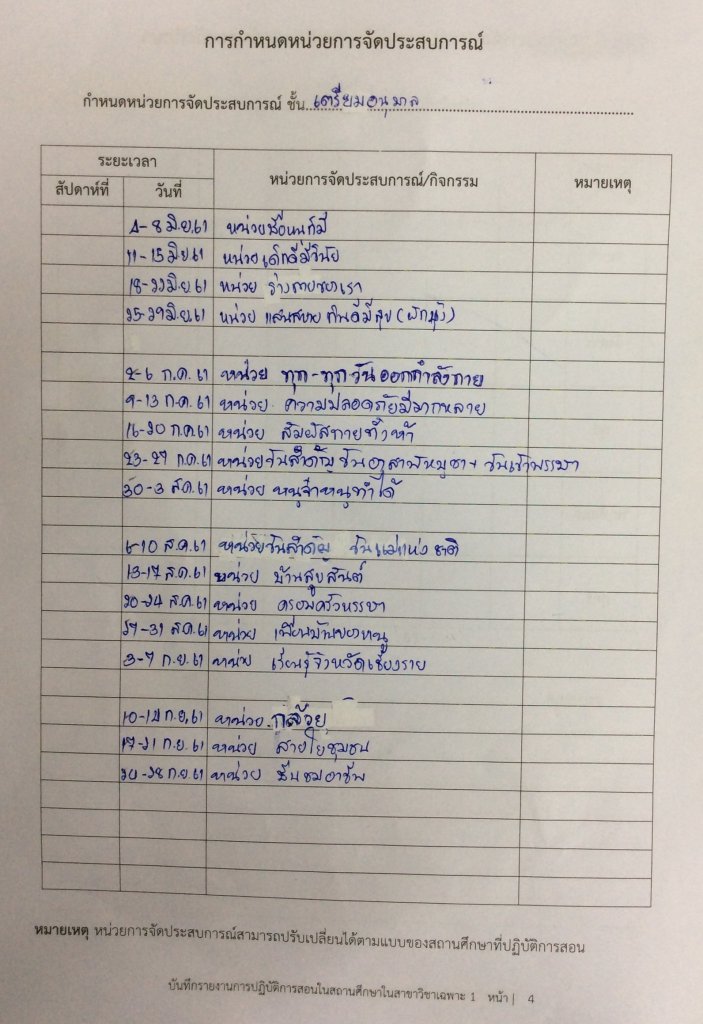 การกำหนดหน่วยการจัดประสบการณ์
กำหนดหน่วยการจัดประสบการณ์ ชั้น เตรียมอนุบาล
ระยะเวลา
สัปดาห์ที่ วันที่ หน่วยการจัดประสบการณ์/กิจกรรม หมายเหตุ
4-8 มิ.ย. 61 หน่วยชื่อหนูก็มี
11-15 มิ.ย 61 หน่วยเด็กดีมีวินัย
18-22 มิ.ย. 61 หน่วย ร่างกายของเรา
25-29 มิ.ย. 61 หน่วย แสนสบาย กินดีมีสุข (ผักบุ้ง)
2-6 ก.ค. 61 หน่วย ทุก-ทุก วัน ออกกำลังกาย
9-13 ก.ค. 61 หน่วย ความปลอดภัยมีมากหลาย
16-20 ก.ค. 61 หน่วย สัมผัสกายทั้งห้า
23-27 ก.ค. 61 หน่วยวันสำคัญ วันอาสาฬหบูชา + วันเข้าพรรษา
30-3 ส.ค. 61 หน่วย หนูจ๋าหนูทำได้
6-10 ส.ค. 61 หน่วยวันสำคัญ วันแม่แห่งชาติ
13-17 ส.ค. 61 หน่วย บ้านสุขสันต์
20-24 ส.ค. 61 หน่วย ครอบครัวหรรษา
27-31 ส.ค. 61 หน่วย เพื่อนบ้านของหนู
3-7 ก.ย. 61 หน่วย เรียนรู้จังหวัดเชียงราย
10-14 ก.ย. 61 หน่วย กล้วย
17-21 ก.ย. 61 หน่วย สายใยชุมชน
ก.ย. 61 หน่วย ชื่นชมอาชีพ
หมายเหตุ หน่วยการจัดประสบการณ์สามารถปรับเปลี่ยนได้ตามแบบของสถานศึกษาที่ปฏิบัติการสอน
บันทึกรายงานการปฏิบัติการสอนในสถานศึกษาในสาขาวิชาเฉพาะ 1 หน้า | 4